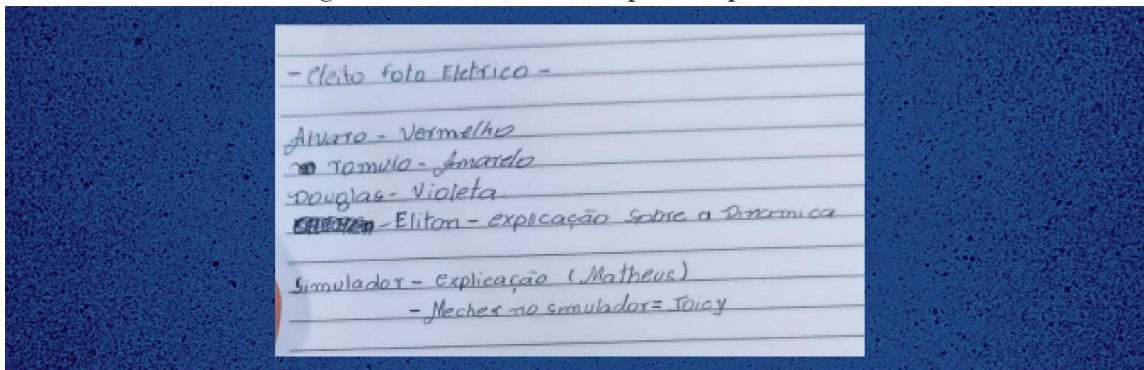 - efeito foto Eletrico -
Alvaro - Vermelho
Romulo - Amarelo
Douglas - Violeta
- Eliton - explicação Sobre a Dinamica
Simulador - explicação (Matheus)
- Mecher no simulador = Joicy